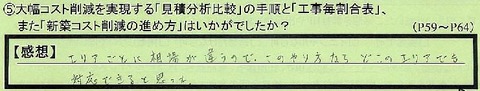 ⑤大幅コスト削減を実現する「見積分析比較」の手順と「工事毎割合表」、
また「新築コスト削減の進め方」はいかがでしたか？　(P59～P64)
【感想】エリアごとに相場が違うので、このやり方なら どこのエリアでも
対応できると思った。